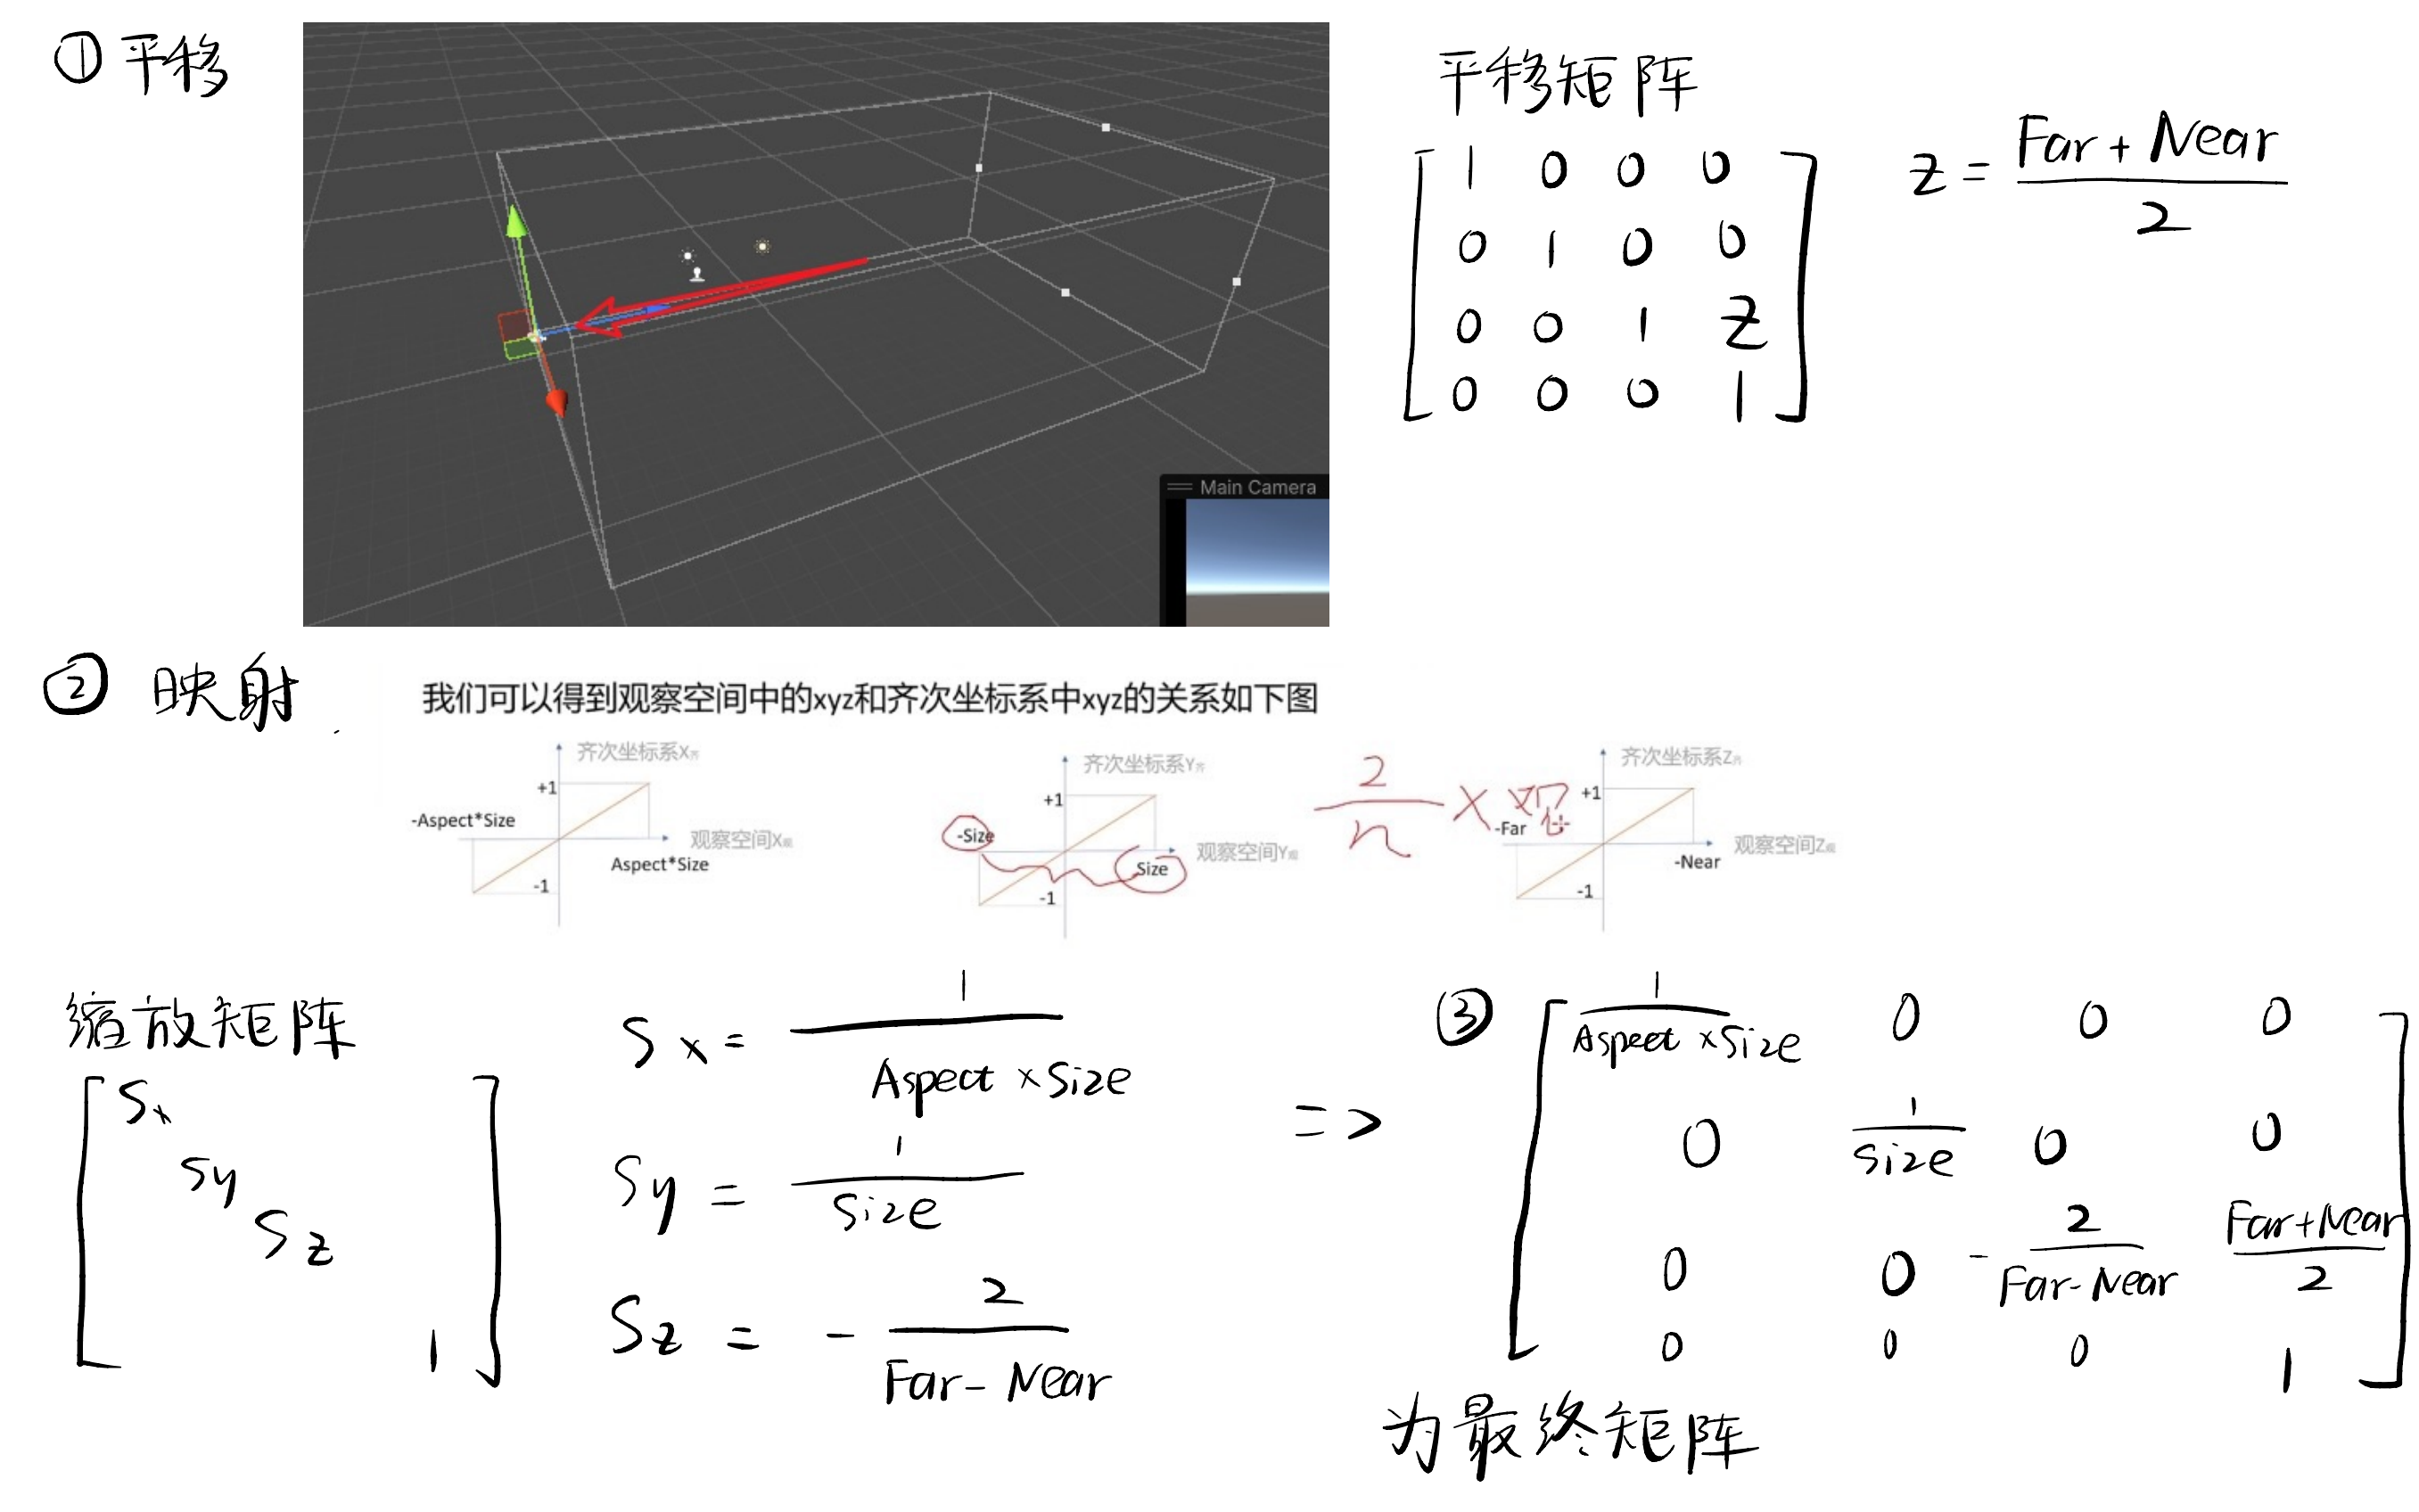 ① 平移
Main Camera
平移矩阵
1 0 0 0
0 1 0 0
0 0 1 z
0 0 0 1
z = Far + Near / 2
② 映射
我们可以得到观察空间中的xyz和齐次坐标系中xyz的关系如下图
齐次坐标系X齐
+1
-Aspect*Size
观察空间X观
Aspect*Size
-1
齐次坐标系Y齐
+1
-Size
观察空间Y观
Size
-1
2 / n ×
齐次坐标系Z齐
+1
-Far
观察空间Z观
-Near
-1
缩放矩阵
Sx
Sy
Sz
1
Sx = 1 / Aspect × Size
Sy = 1 / Size
Sz = - 2 / Far - Near
=>
③
1 / Aspect × Size 0 0 0
0 1 / Size 0 0
0 0 - 2 / Far - Near Far + Near / 2
0 0 0 1
为最终矩阵